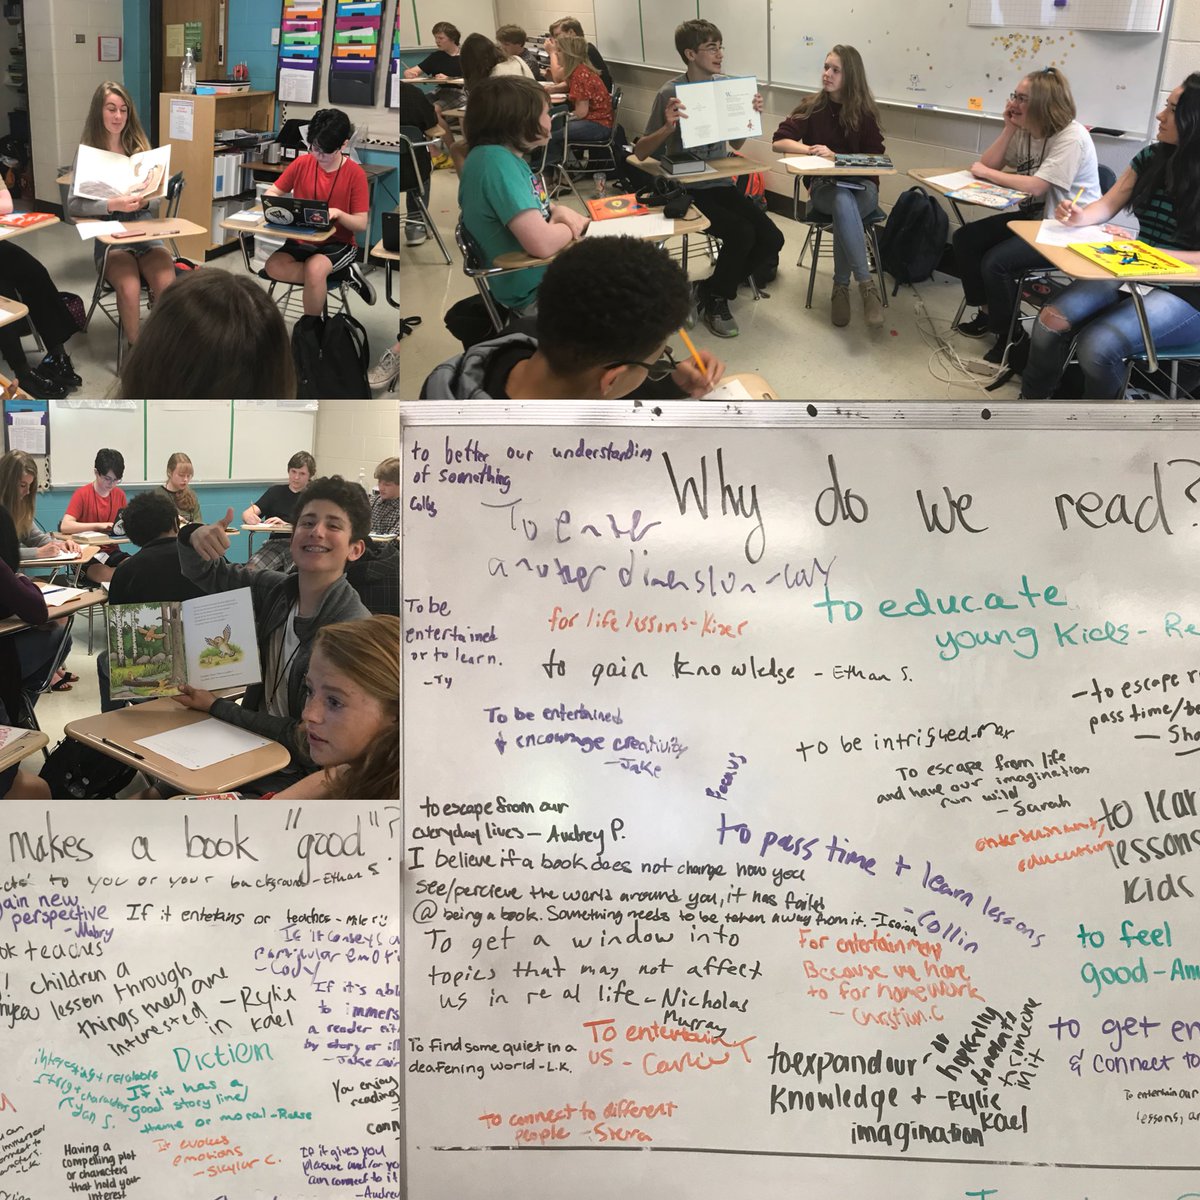 Why do we read?
to better our understanding
of something
Colby
To enter
another dimension - Cay
for life lessons - Kizer
to educate
young kids - Re
To be
entertained
or to learn.
- Ty
to gain knowledge - Ethan S.
- to escape r
pass time/be
- Sha
To be entertained
& encourage creativity
- Jake
to be intrigued - Mar
To escape from life
and have our imagination
run wild
- Sarah
Focus
to escape from our
everyday lives - Audrey P.
to pass time + learn lessons
- Collin
entertainment,
education
lessons
kids
I believe if a book does not change how you
see/percieve the world around you, it has failed
@ being a book. Something needs to be taken away from it. - Isaiah
To get a window into
topics that may not affect
us in real life - Nicholas
Murray
For entertainment
Because we have
to for homework
- Christian.C
to feel
good - Ann
To find some quiet in a
deafening world - L.K.
To entertain
us -
to expand our
knowledge + - Rylie
imagination Kael
or
hopefully
to someone
in it
to get en
& connect to
To entertain our
lessons, a
to connect to different
people - Sierra
makes a book "good"?
to you or your background - Ethan S
gain new
perspective
- Mabry
If it entetains or teaches - Mile
ok teaches
If it conveys a
particular emotio
- Cody
children a
lesson through
things they are
interested in - Rylie
Kael
If it's abl
to immers
a reader eit
by story or ill
- Jake
Diction
interesting + relatable
story + character
Ryan S.
If it has a
good story line/
theme or moral - Reese
You enjoy
reading
conn
It evokes
emotions
- Skylar C.
Having a
compelling plot
or characters
that hold your
interest
If it gives you
pleasure and/or yo
can connect to it
- Audrey